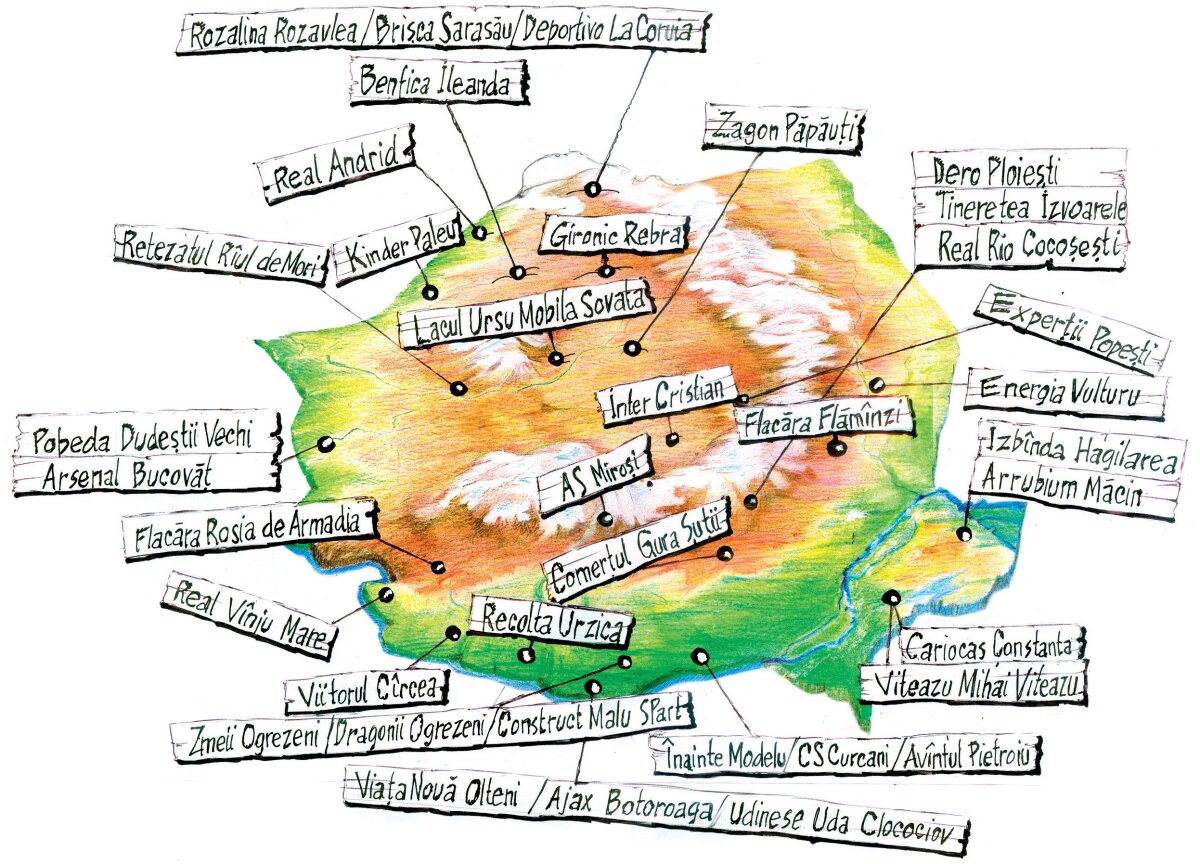 Rozalina Rozavlea/Brișca Sarasău/Deportivo La Coruia
Benfica Ileanda
Zagon Păpăuți
Real Andrid
Dero Ploiești
Tineretea Izvoarele
Real Rio Cocoșești
Retezatul Rîul de Mori
Kinder Paleu
Gironic Rebra
Lacul Ursu Mobila Sovata
Experții Popești
Inter Cristian
Energia Vulturu
Flacăra Flămînzi
Pobeda Dudeștii Vechi
Arsenal Bucovăț
Izbînda Hagilarea
Arrubium Măcin
AS Miroși
Flacăra Roșia de Armadia
Comerțul Gura Șuții
Real Vînju Mare
Recolta Urzica
Cariocas Constanta
Viteazu Mihai Viteazu
Viitorul Cîrcea
Zmeii Ogrezeni/Dragonii Ogrezeni/Construct Malu Spart
Înainte Modelu/CS Curcani/Avîntul Pietroiu
Viața Nouă Olteni /Ajax Botoroaga/Udinese Uda Clocociov